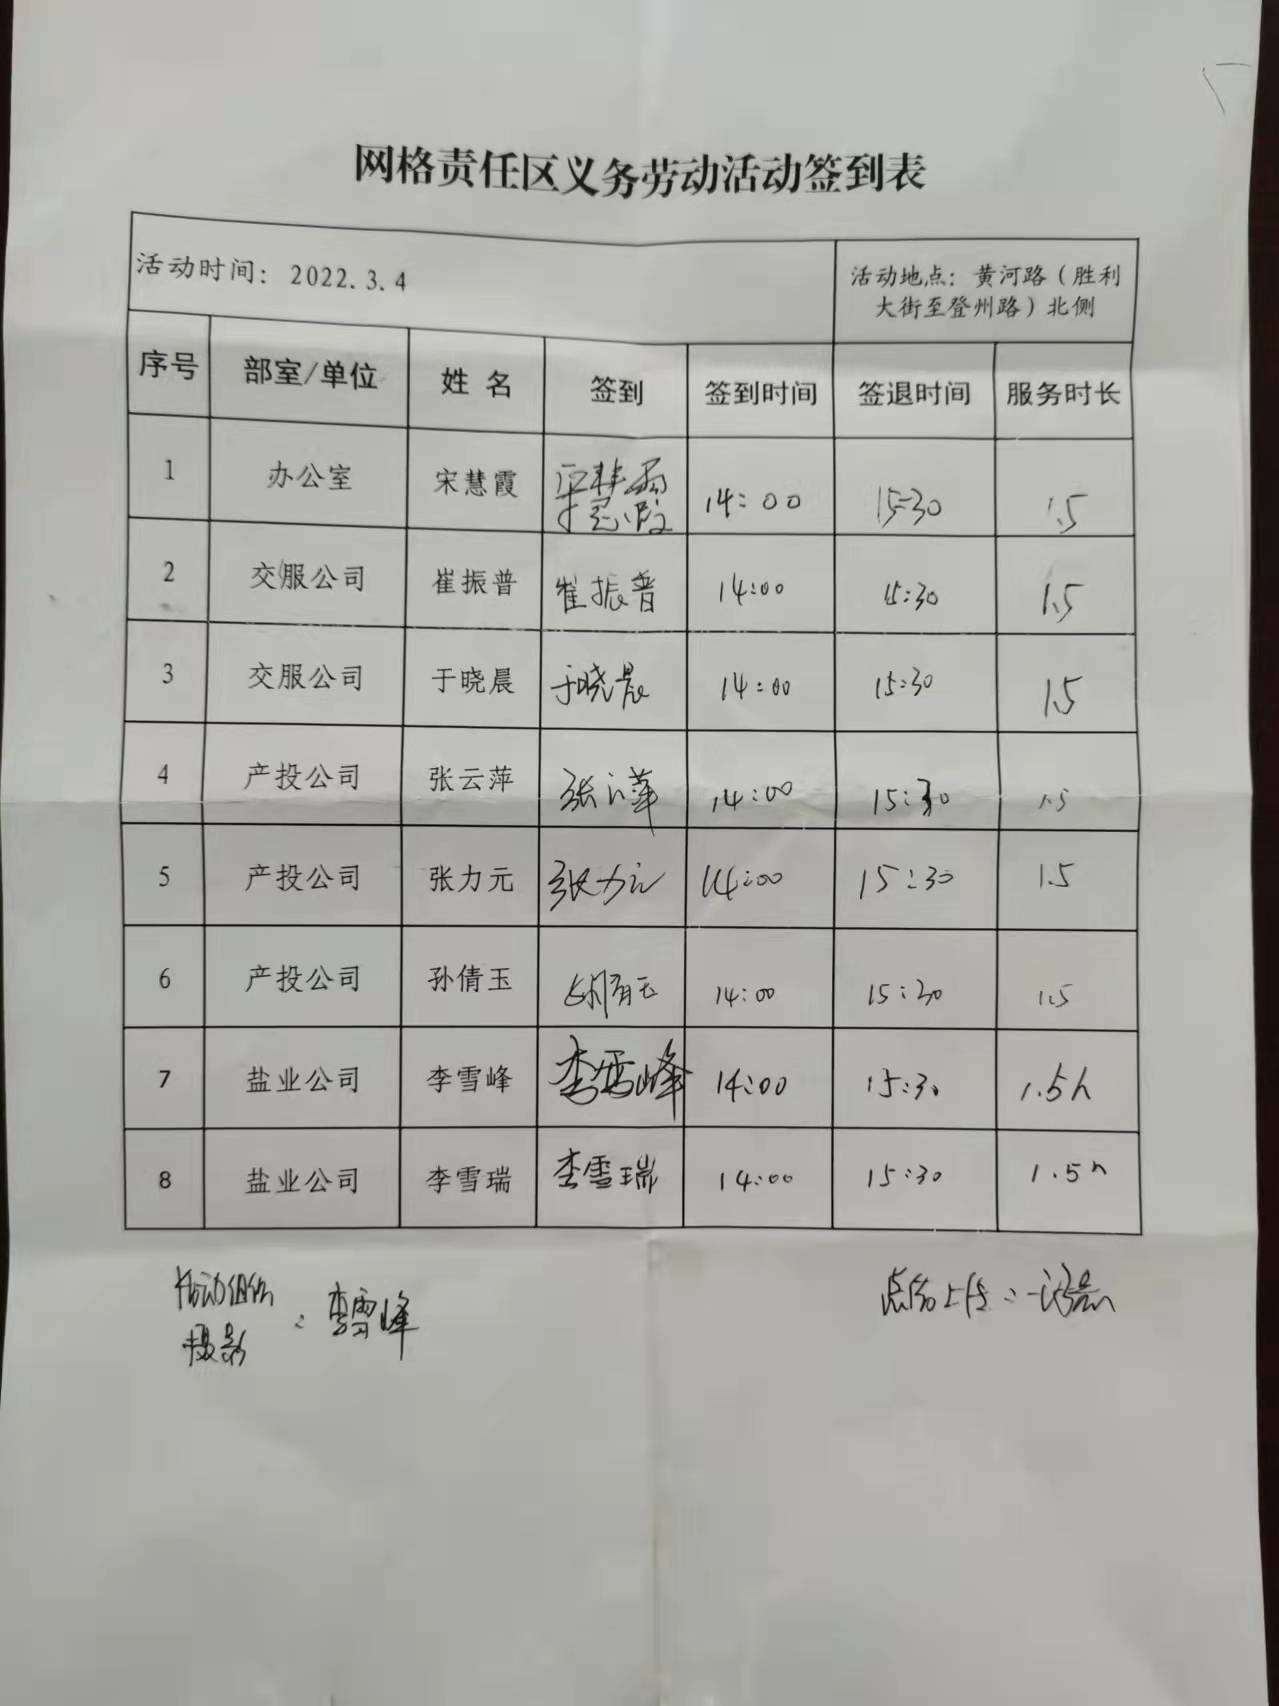 网格责任区义务劳动活动签到表
活动时间：2022.3.4
活动地点：黄河路（胜利
大街至登州路）北侧
序号 部室/单位 姓 名 签到 签到时间 签退时间 服务时长
1 办公室 宋慧霞 14:00 15:30 1.5
2 交服公司 崔振普 崔振普 14:00 15:30 1.5
3 交服公司 于晓晨 于晓晨 14:00 15:30 1.5
4 产投公司 张云萍 张云萍 14:00 15:30 1.5
5 产投公司 张力元 张力元 14:00 15:30 1.5
6 产投公司 孙倩玉 孙倩玉 14:00 15:30 1.5
7 盐业公司 李雪峰 李雪峰 14:00 15:30 1.5h
8 盐业公司 李雪瑞 李雪瑞 14:00 15:30 1.5h
活动组织
摄影 : 李雪峰